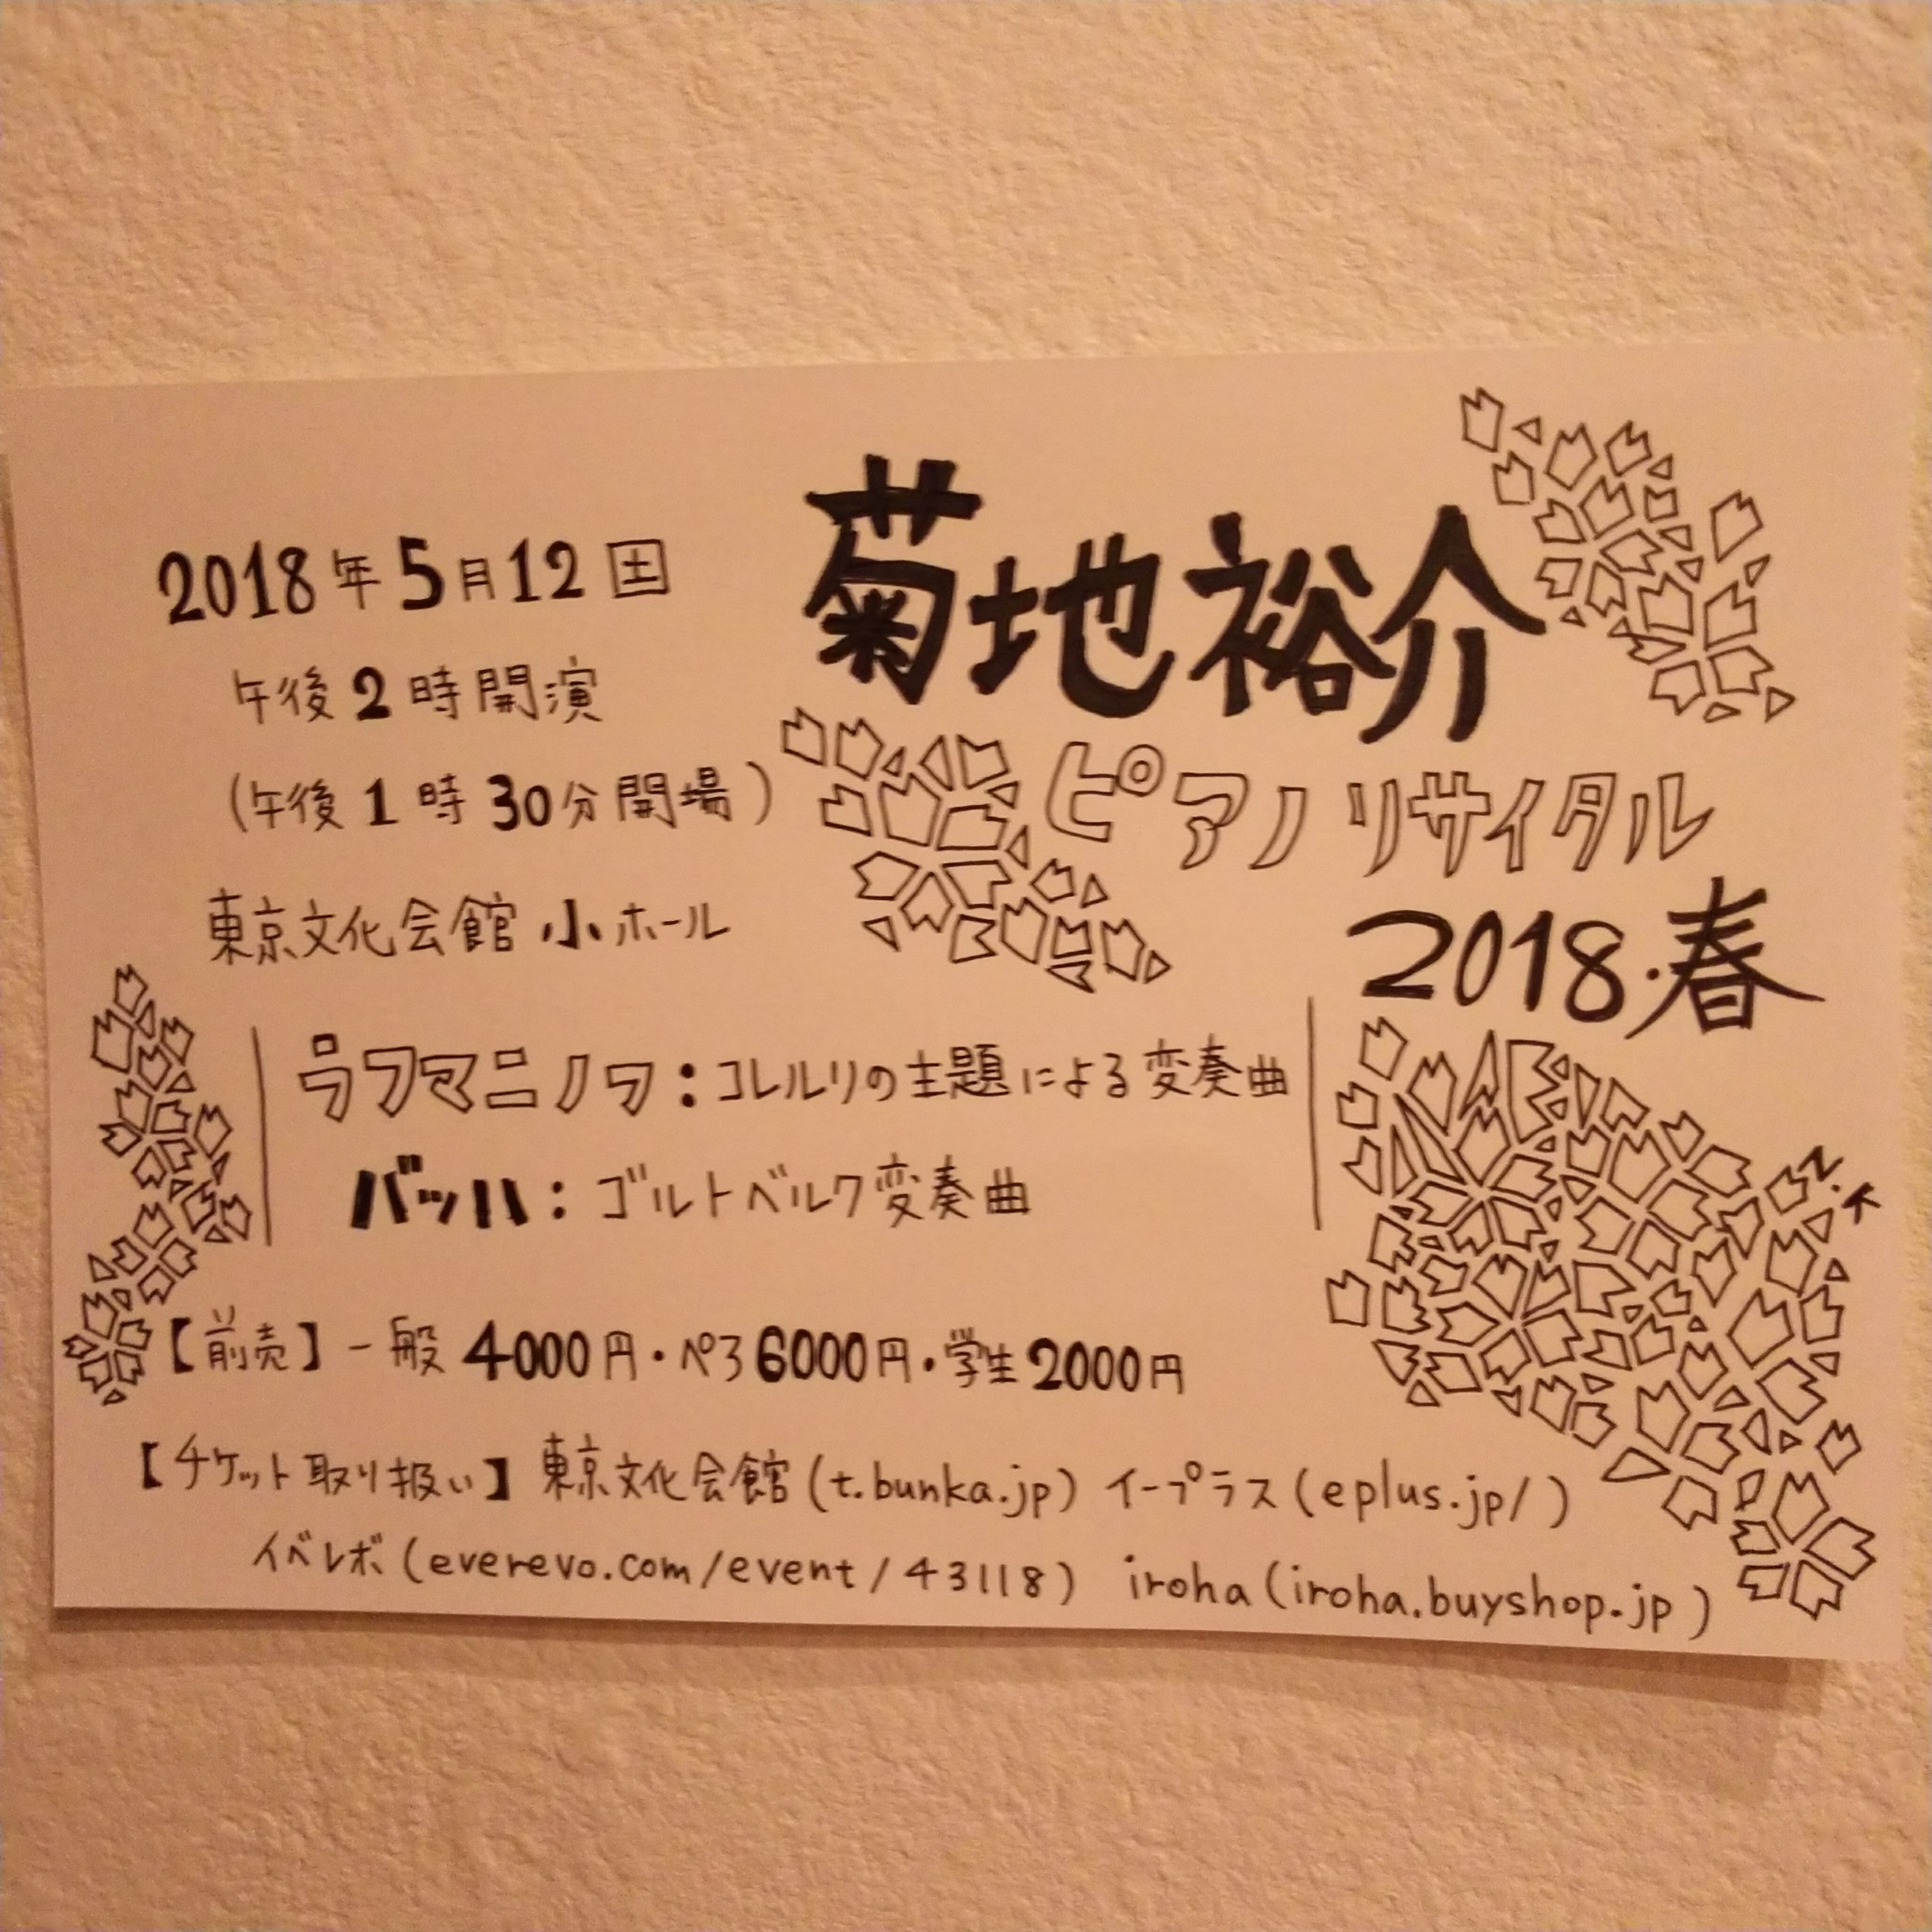 菊地裕介
ピアノリサイタル
2018.春
2018年5月12土
午後2時開演
(午後1時30分開場)
東京文化会館 小ホール
ラフマニノフ:コレルリの主題による変奏曲
バッハ:ゴルトベルク変奏曲
【前売】一般4000円・ペア6000円・学生2000円
【チケット取り扱い】東京文化会館(t.bunka.jp) イープラス(eplus.jp/)
イベレボ(everevo.com/event/43118) iroha(iroha.buyshop.jp)
N.K